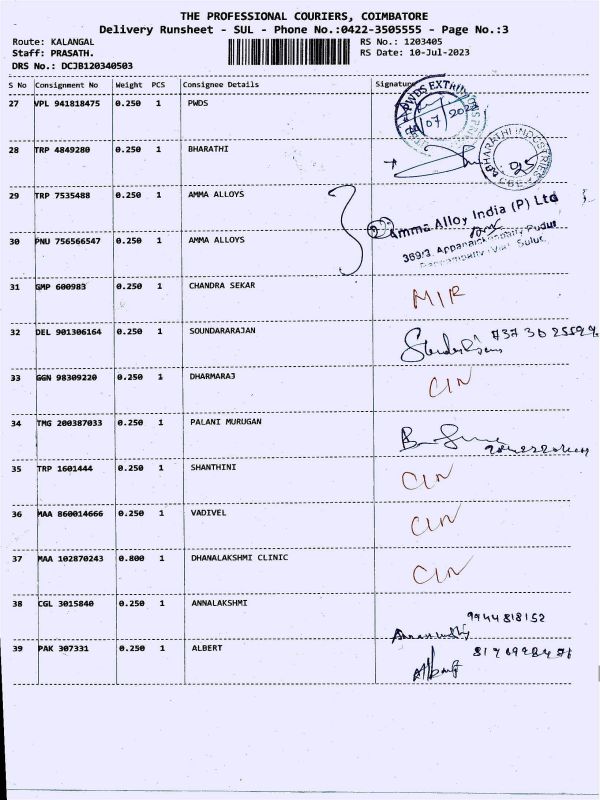 THE PROFESSIONAL COURIERS, COIMBATORE
Delivery Runsheet - SUL - Phone No.:0422-3505555 - Page No.:3
Route: KALANGAL
RS No.: 1203405
Staff: PRASATH.
RS Date: 10-Jul-2023
DRS No.: DCJB120340503
S No Consignment No Weight PCS Consignee Details Signature
27 VPL 941818475 0.250 1 PWDS
PWDS EXTRU
07/202
28 TRP 4849280 0.250 1 BHARATHI
BHARATHI INDUSTRIES
29 TRP 7535488 0.250 1 AMMA ALLOYS
Amma Alloy India (P) Ltd
30 PNU 756566547 0.250 1 AMMA ALLOYS
369/3, Pudur
Sulur
31 GMP 600983 0.250 1 CHANDRA SEKAR MIR
32 DEL 901306164 0.250 1 SOUNDARARAJAN
33 GGN 98309220 0.250 1 DHARMARAJ CIN
34 TMG 200387033 0.250 1 PALANI MURUGAN
35 TRP 1601444 0.250 1 SHANTHINI CIN
36 MAA 860014666 0.250 1 VADIVEL CIN
37 MAA 102870243 0.800 1 DHANALAKSHMI CLINIC CIN
38 CGL 3015840 0.250 1 ANNALAKSHMI
9944818152
39 PAK 307331 0.250 1 ALBERT
Albert